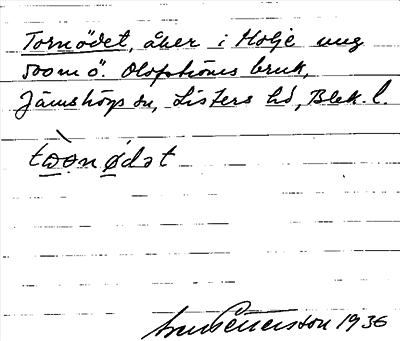 Tornödet, åker i Holje ung
500 m ö. Olofströms bruk,
Jämshögs sn, Listers hd, Blek. l.
Pettersson 1936